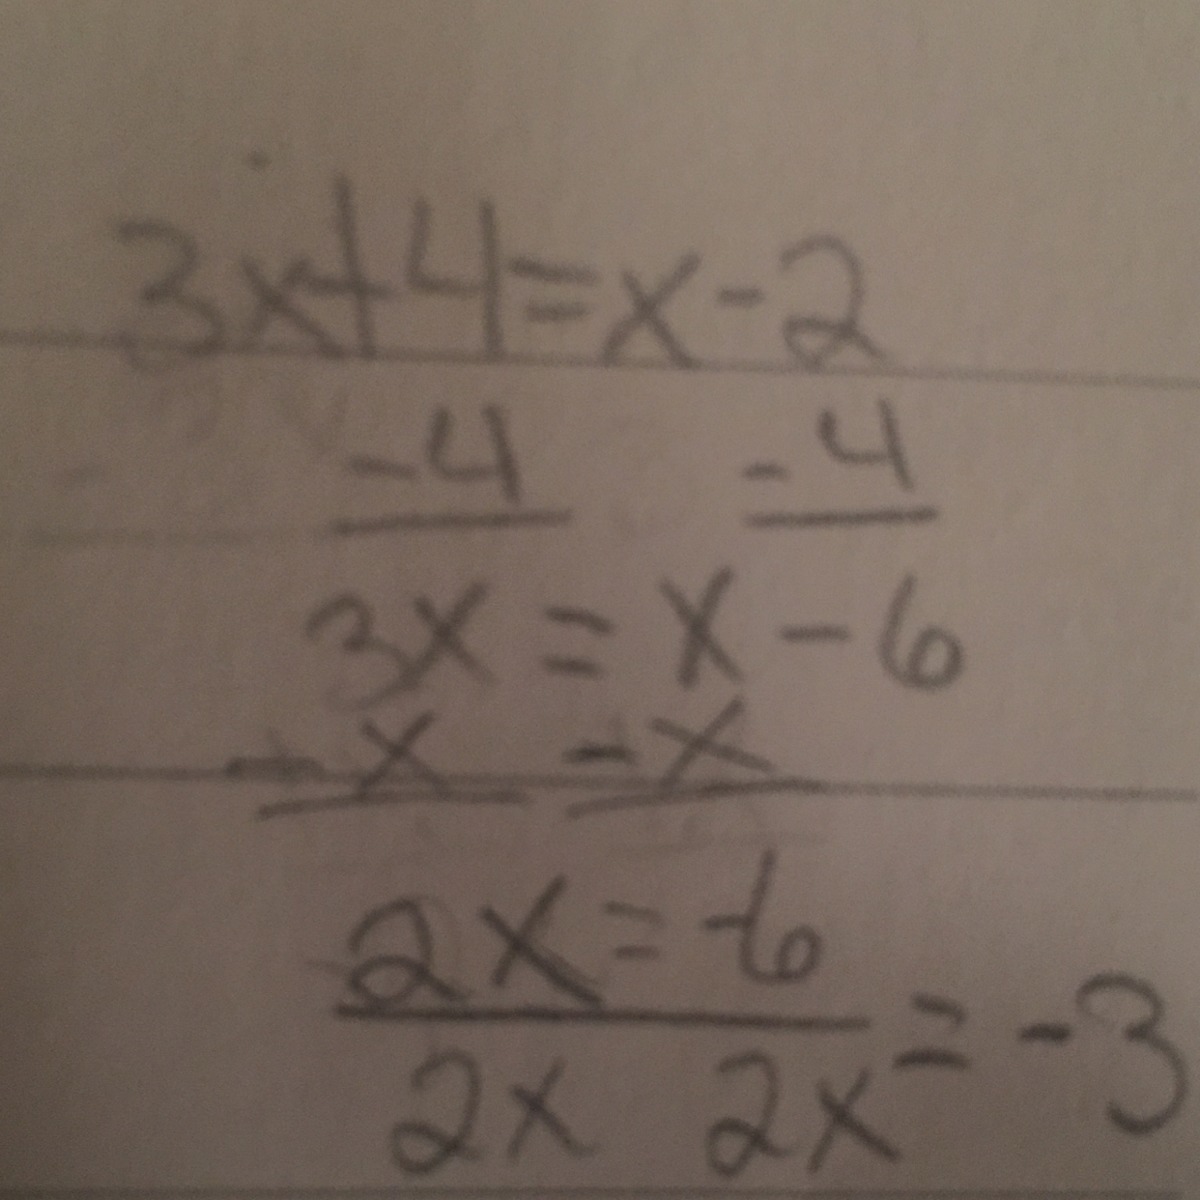 3x+4=x-2
-4 -4
3x = x - 6
-x -x
2x = -6
2x 2x = -3